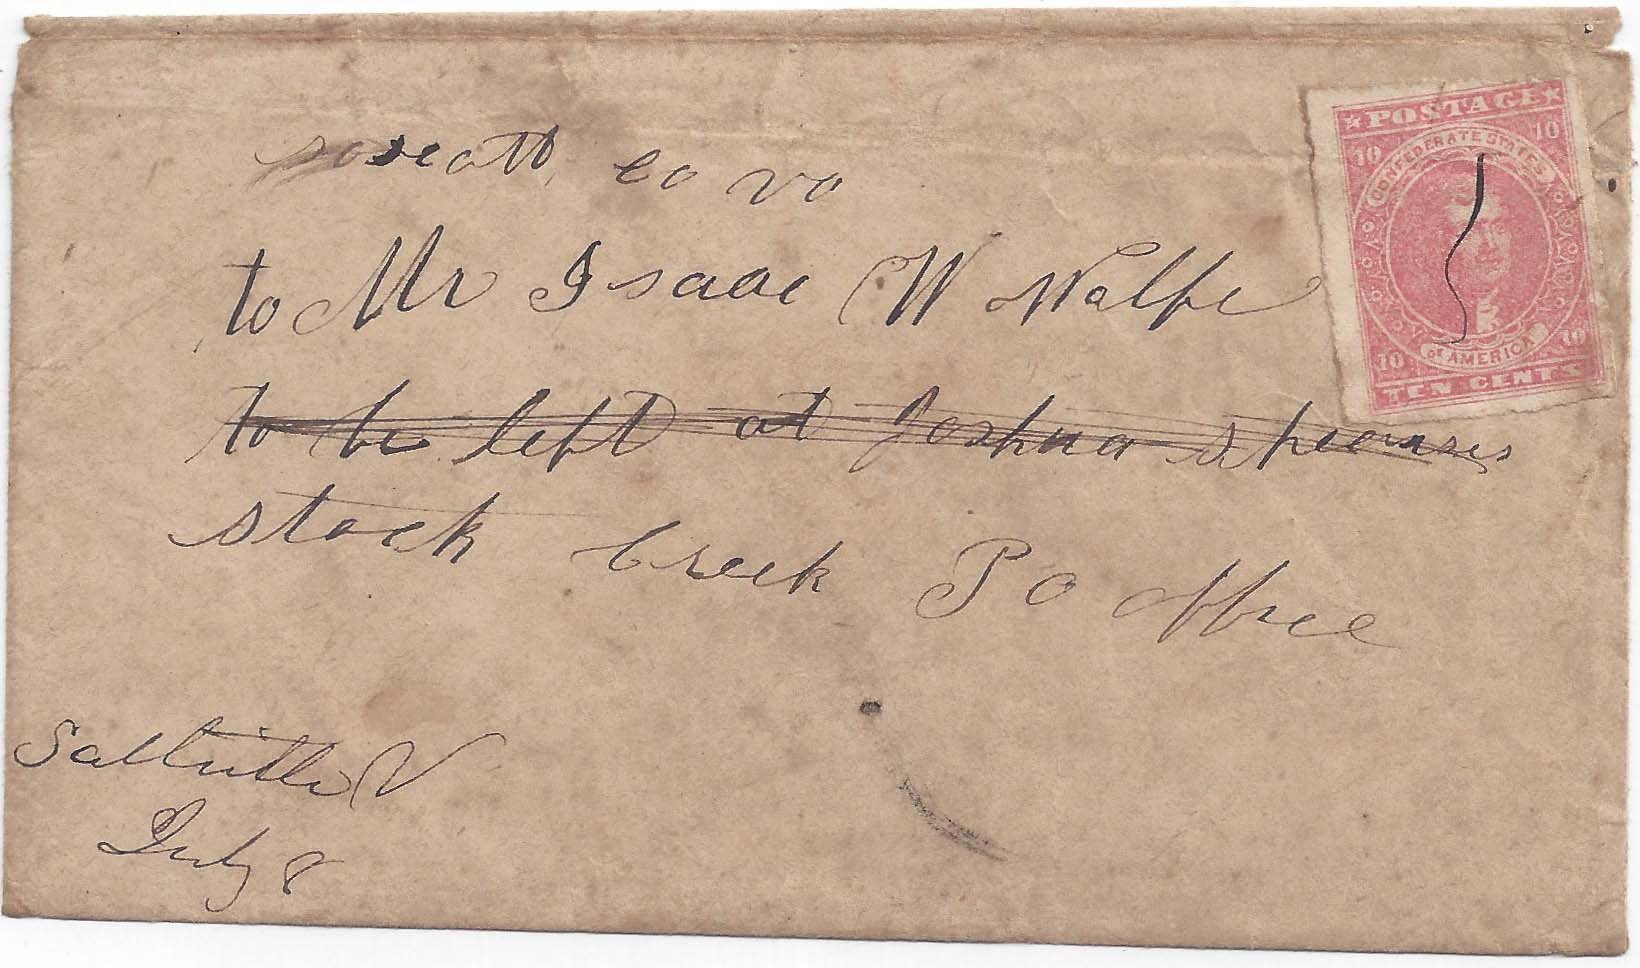 scott co va
to Mr Isaac W Wolfe
to be left at Joshua
stock creek P O office
Saltville V
July 8
POSTAGE
10 10
CONFEDERATE STATES
OF AMERICA
10 10
TEN CENTS